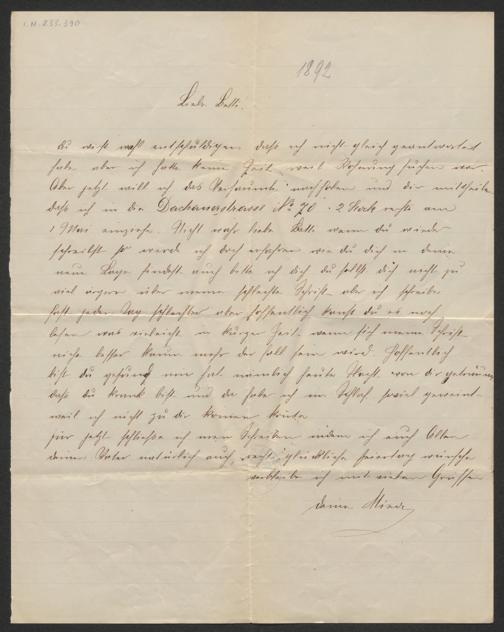 I.N. 235.390
1892
Liebe Betti.
Du wirst wohl entschuldigen daß ich nicht gleich geantwortet
habe aber ich hatte keine Zeit, weil Wohnung suchen war.
Aber jetzt will ich das Versäumte nachholen und dir mittheilen
daß ich in die Dachauerstrasse No 70 · 2 Stock rechts am
1 Mai einziehe. Nicht wahr liebe Betti wenn du wieder
schreibst so werde ich doch erfahren wie du dich in deine
neue Lage findest auch bitte ich dich du sollst dich nicht zu
viel ärgern über meine schlechte Schrift aber ich schreibe
fast jeden Tag schlechter aber hoffentlich kanst du es noch
lesen was vieleicht in kurzer Zeit wenn sich meine Schrift
nicht bessert kaum mehr der fall sein wird. Hoffentlich
bist du gesund mir hat nämlich heute Nacht von dir geträumt
daß du krank bist und da habe ich im Schlaf soviel geweint
weil ich nicht zu dir komen konte
für jetzt schließe ich mein Schreiben indem ich euch Allen
deinen Vater natürlich auch, recht glückliche feiertag wünsche
verbleibe ich mit vielen Grüssen
deine